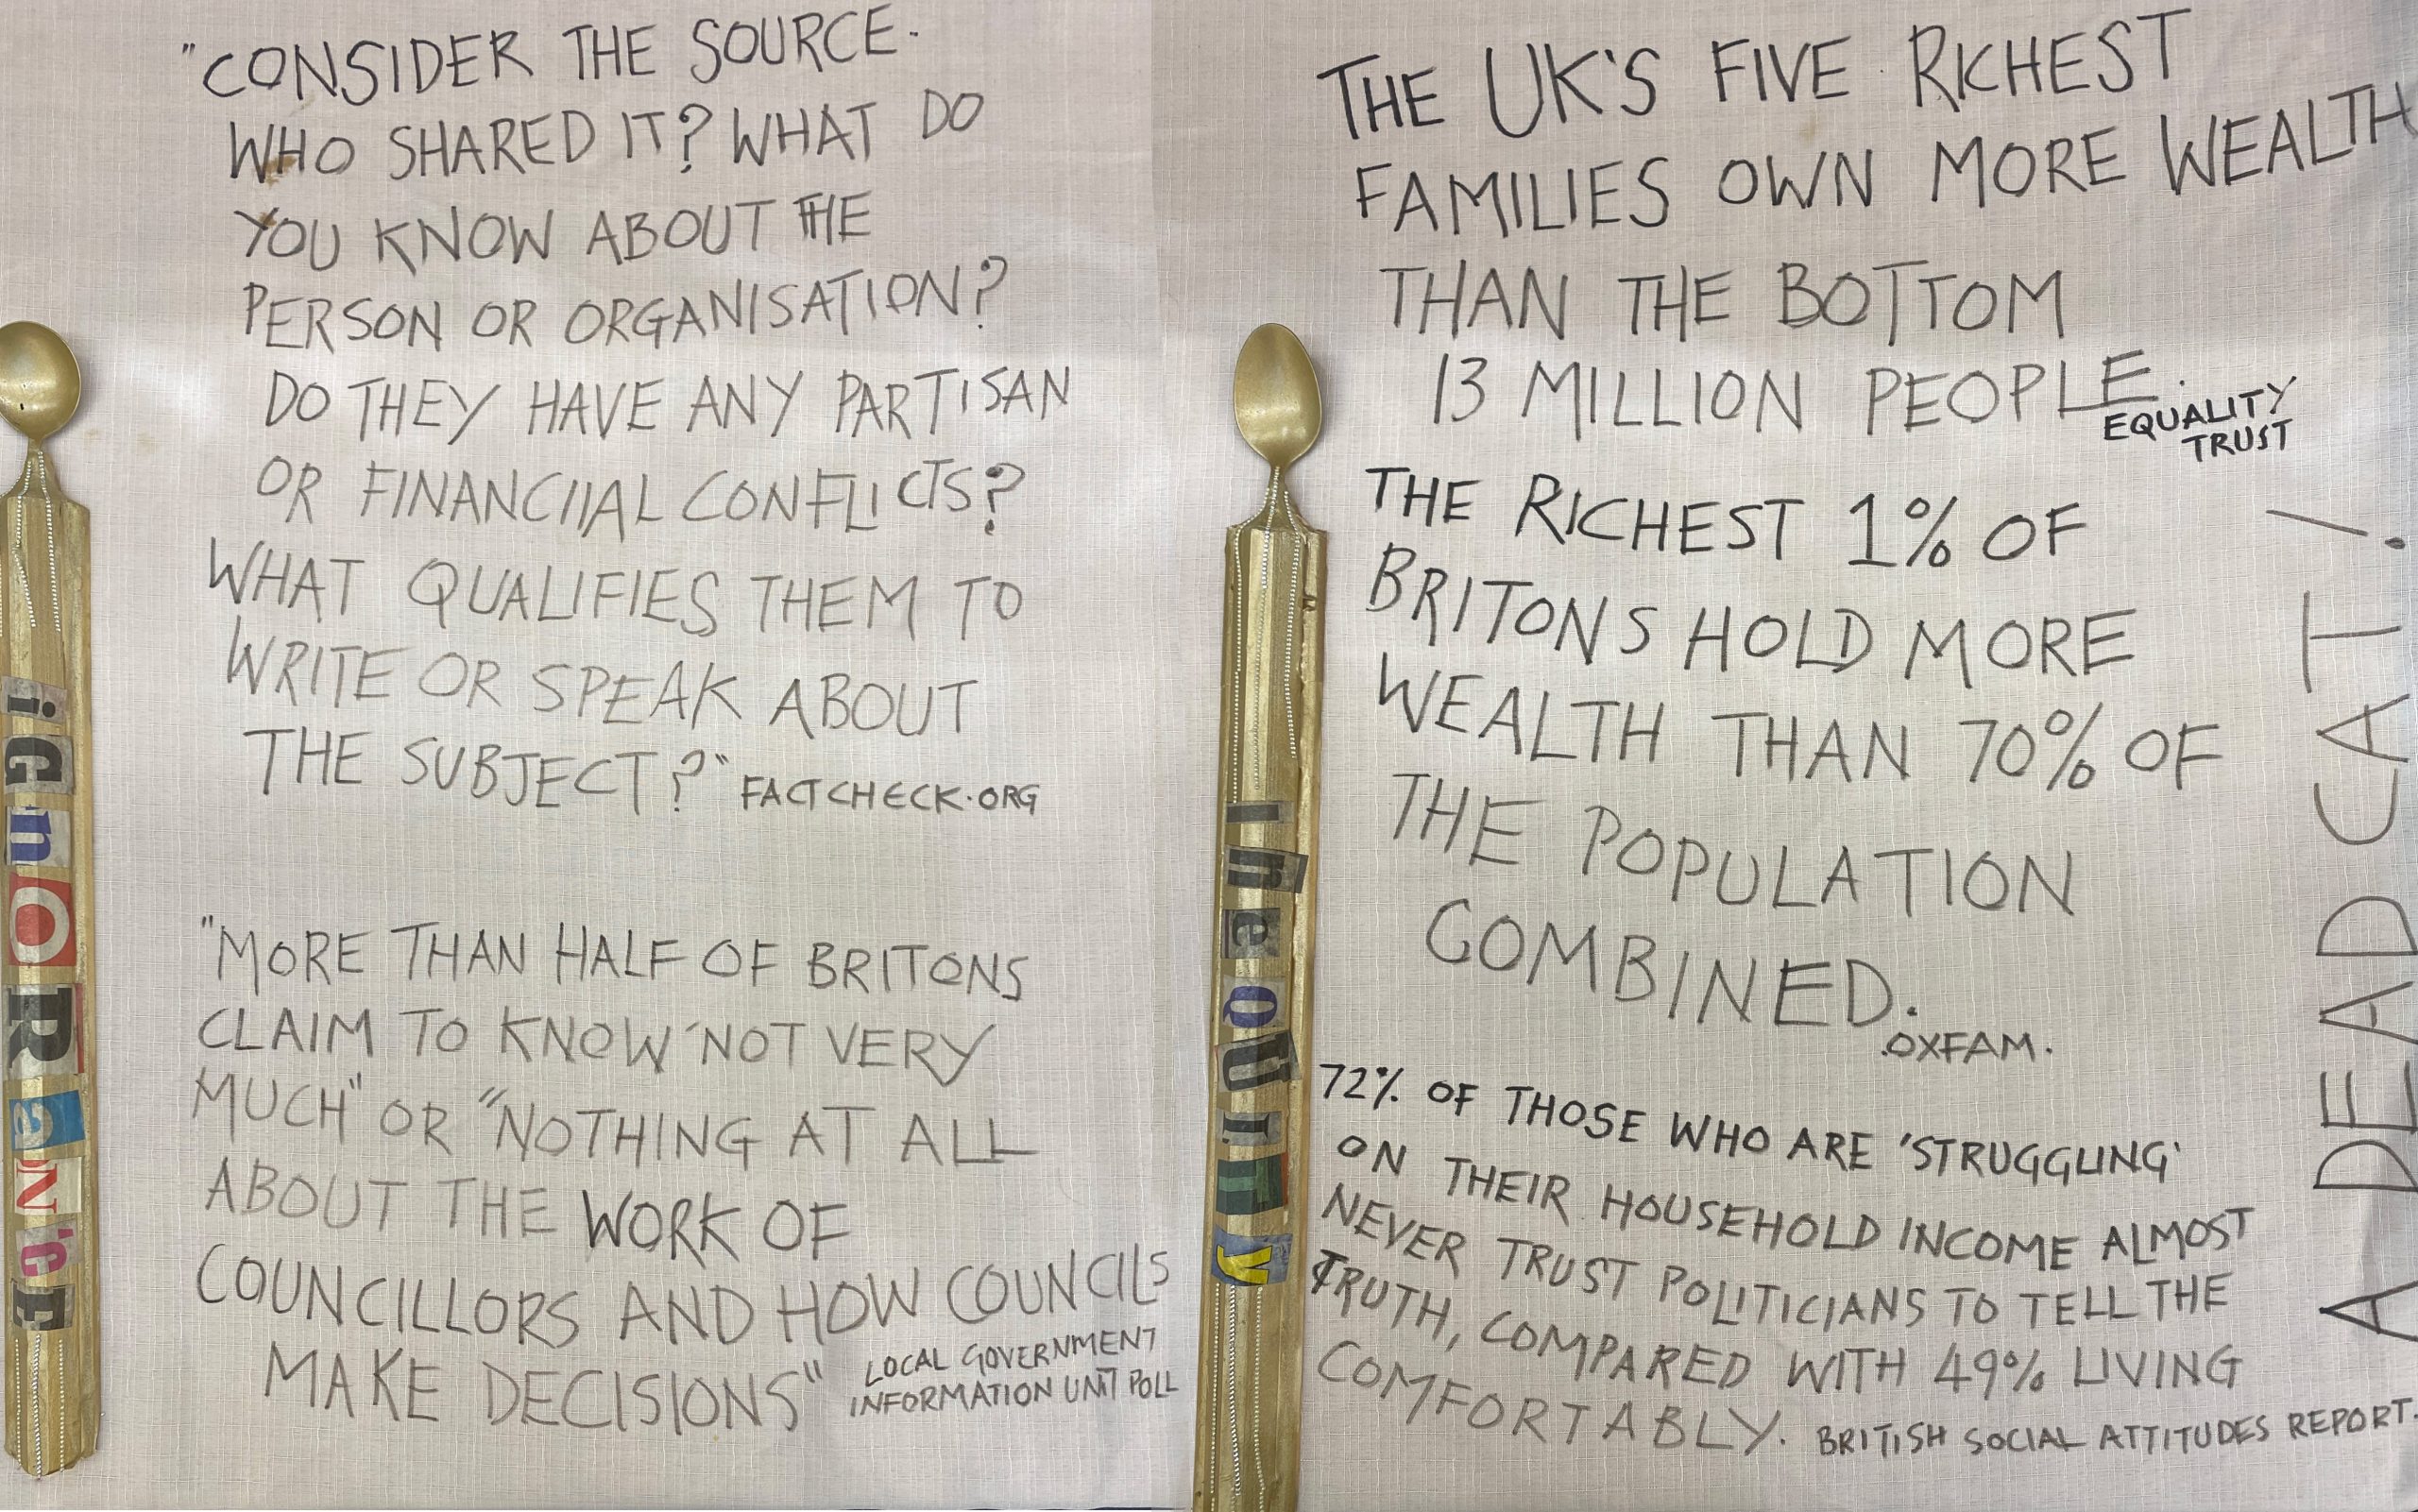 "CONSIDER THE SOURCE.
WHO SHARED IT? WHAT DO
YOU KNOW ABOUT THE
PERSON OR ORGANISATION?
DO THEY HAVE ANY PARTISAN
OR FINANCIIAL CONFLICTS?
WHAT QUALIFIES THEM TO
WRITE OR SPEAK ABOUT
THE SUBJECT?" FACTCHECK.ORG
"MORE THAN HALF OF BRITONS
CLAIM TO KNOW "NOT VERY
MUCH" OR "NOTHING AT ALL
ABOUT THE WORK OF
COUNCILLORS AND HOW COUNCILS
MAKE DECISIONS" LOCAL GOVERNMENT
INFORMATION UNIT POLL
iGnORaN'cE
THE UK'S FIVE RICHEST
FAMILIES OWN MORE WEALTH
THAN THE BOTTOM
13 MILLION PEOPLE.
EQUALITY
TRUST
THE RICHEST 1% OF
BRITONS HOLD MORE
WEALTH THAN 70% OF
THE POPULATION
COMBINED.
OXFAM.
72% OF THOSE WHO ARE 'STRUGGLING'
ON THEIR HOUSEHOLD INCOME ALMOST
NEVER TRUST POLITICIANS TO TELL THE
TRUTH, COMPARED WITH 49% LIVING
COMFORTABLY. BRITISH SOCIAL ATTITUDES REPORT.
IneQUITy
A DEAD CAT!